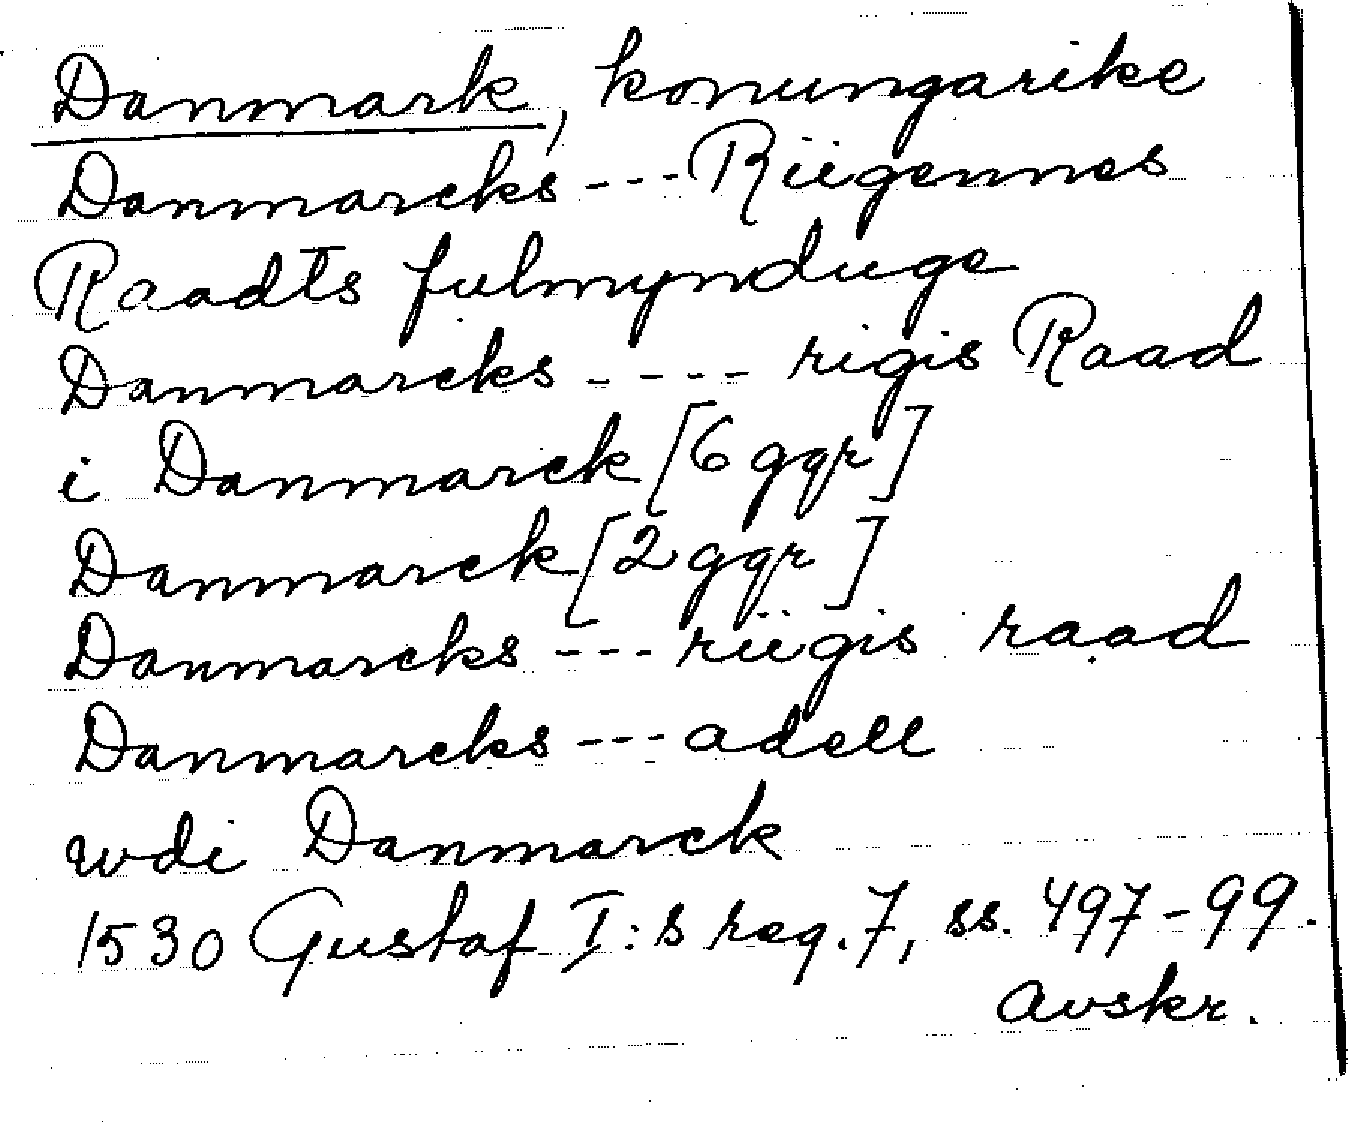 Danmark, konungarike
Danmarcks --- Riigennes
Raadts fulmynduge
Danmarcks ---- rigis Raad
i Danmarck [6 ggr]
Danmarck [2 ggr]
Danmarcks --- riigis raad
Danmarcks --- adell
wdi Danmarck
1530 Gustaf I:s reg. 7, ss. 497-99.
Avskr.